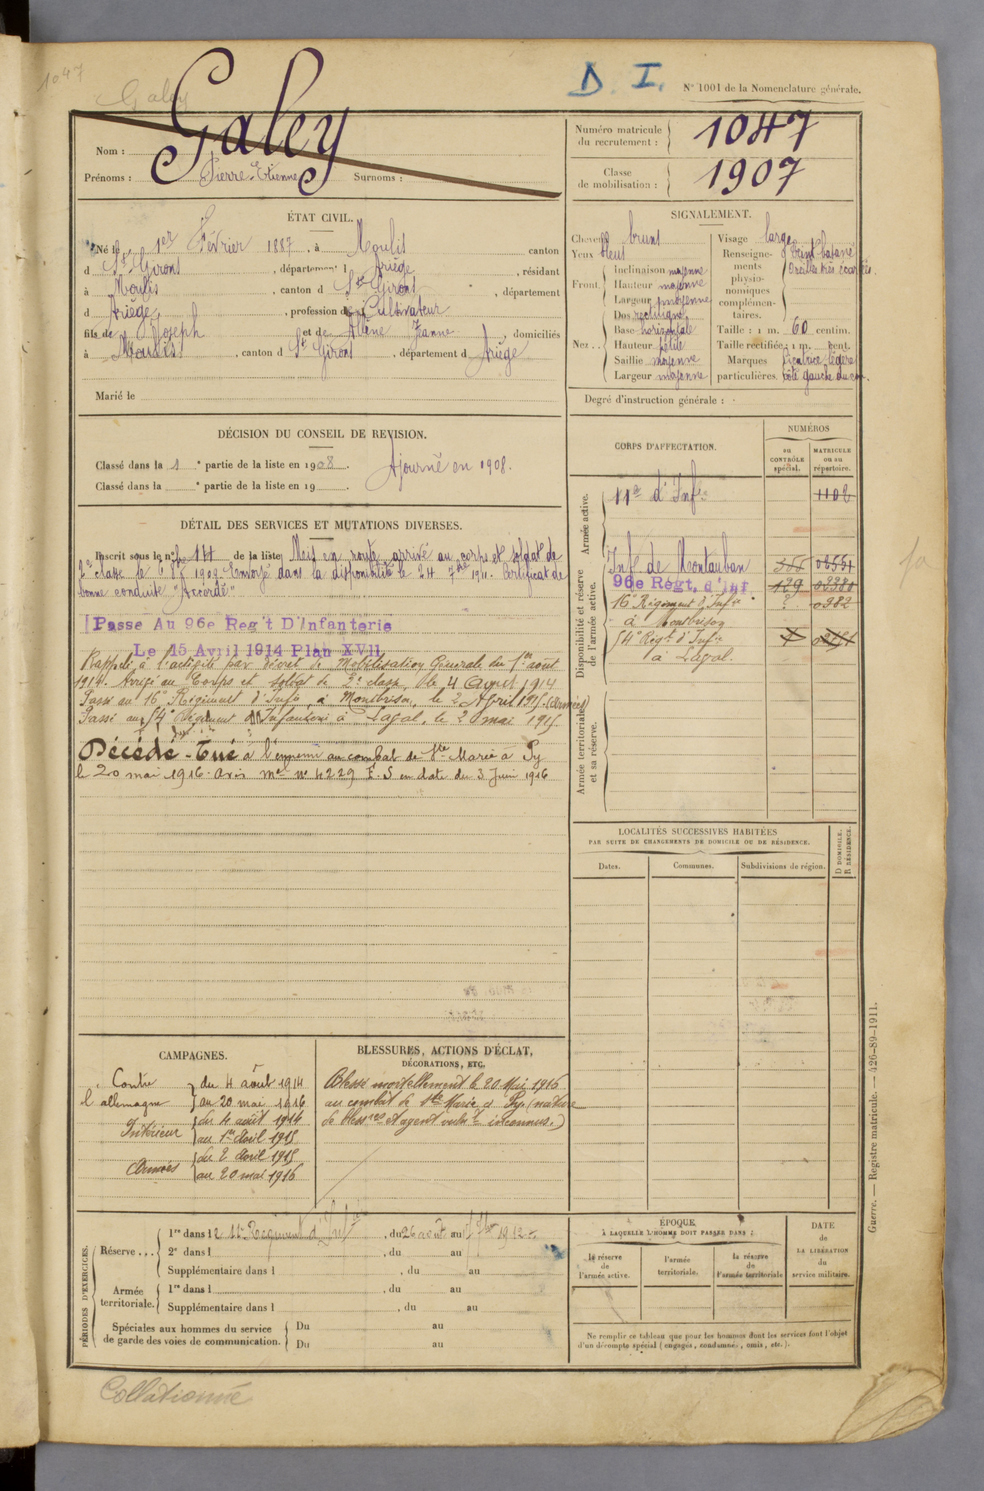 1047
Galey
D. I.
N° 1001 de la Nomenclature générale.
Nom : Galey
Prénoms : Pierre-Etienne Surnoms :
Numéro matricule du recrutement : 1047
Classe de mobilisation : 1907
ÉTAT CIVIL.
Né le 1er Février 1887, à Moulis canton
d St Girons, département d Ariège, résidant
à Moulis, canton d St Girons, département
d Ariège, profession d Cultivateur
fils de Joseph et de Jeanne, domiciliés
à Moulis, canton d St Girons, département d Ariège
Marié le
SIGNALEMENT.
Cheveux bruns
Yeux bleus
Front. Inclinaison moyenne
Hauteur moyenne
Largeur moyenne
Nez .. Dos rectiligne
Base horizontale
Hauteur petite
Saillie moyenne
Largeur moyenne
Visage large
Renseignements physionomiques complémentaires. Teint basané
Oreilles très écartées.
Taille : 1 m. 60 centim.
Taille rectifiée : 1 m. cent.
Marques particulières. Cicatrice légère côté gauche du cou.
Degré d'instruction générale :
DÉCISION DU CONSEIL DE REVISION.
Classé dans la 1 e partie de la liste en 1908. Ajourné en 1908.
Classé dans la e partie de la liste en 19 .
CORPS D'AFFECTATION.
NUMÉROS
au CONTRÔLE spécial.
MATRICULE ou au répertoire.
Armée active.
11e d'Infie 1102
Disponibilité et réserve de l'armée active.
Inf. de Montauban
96e Regt. d'Inf. 129
16e Régiment d'Infie ? 0982
à Montbrison
54e Régt d'Infie
à Laval.
Armée territoriale et sa réserve.
DÉTAIL DES SERVICES ET MUTATIONS DIVERSES.
Inscrit sous le n° 14 de la liste Mis en route, arrivé au corps et soldat de
2e classe le 8 1909. Envoyé dans la disponibilité le 24 7bre 1911. Certificat de
bonne conduite "Accordé"
Passe Au 96e Reg't D'Infanterie
Le 15 Avril 1914 Plan XVII
Rappelé à l'activité par décret de Mobilisation Générale du 1er août
1914. Arrivé au Corps et soldat de 2e classe, le 4 Août 1914
Passé au 16e Régiment d'Infie, à Montbrison, le 2 Avril 1915. (Armées)
Passé au 54e Régiment d'Infanterie à Laval, le 20 mai 1915
Décédé - Tué à l'ennemi au combat de Ste Marie à Py
le 20 mai 1916. avis mel n° 4229 E.S en date du 3 Juin 1916
LOCALITÉS SUCCESSIVES HABITÉES
PAR SUITE DE CHANGEMENTS DE DOMICILE OU DE RÉSIDENCE.
Dates. Communes. Subdivisions de région. D DOMICILE. R RÉSIDENCE.
CAMPAGNES.
Contre l'allemagne du 4 août 1914
au 20 mai 1916
Intérieur du 4 août 1914
au 1er Avril 1915
Armées du 2 Avril 1915
au 20 mai 1916
BLESSURES, ACTIONS D'ÉCLAT,
DÉCORATIONS, ETC.
Blessé mortellement le 20 Mai 1916
au combat de Ste Marie à Py. (nature
de blessres et agent vulnt inconnus.)
PÉRIODES D'EXERCICES.
Réserve ... 1re dans le 11e Régiment d'Infie, du 26 août au 1912
2e dans l , du au
Supplémentaire dans l , du au
Armée territoriale. 1re dans l , du au
Supplémentaire dans l , du au
Spéciales aux hommes du service de garde des voies de communication. Du au
Du au
ÉPOQUE
À LAQUELLE L'HOMME DOIT PASSER DANS :
la réserve de l'armée active.
l'armée territoriale.
la réserve de l'armée territoriale
DATE de LA LIBÉRATION du service militaire.
Ne remplir ce tableau que pour les hommes dont les services font l'objet
d'un décompte spécial (engagés, condamnés, omis, etc.).
Guerre. — Registre matricule. — 426-89-1911.
Collationné